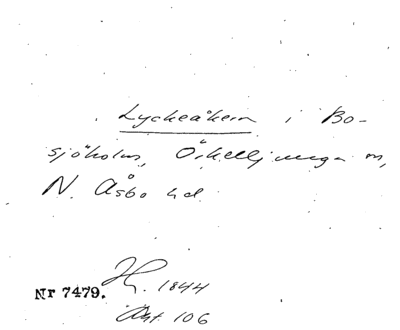 Lyckeåkern i Bo-
sjöholm, Örkelljunga sn,
N. Åsbo hd.
Nr 7479. 1844
106